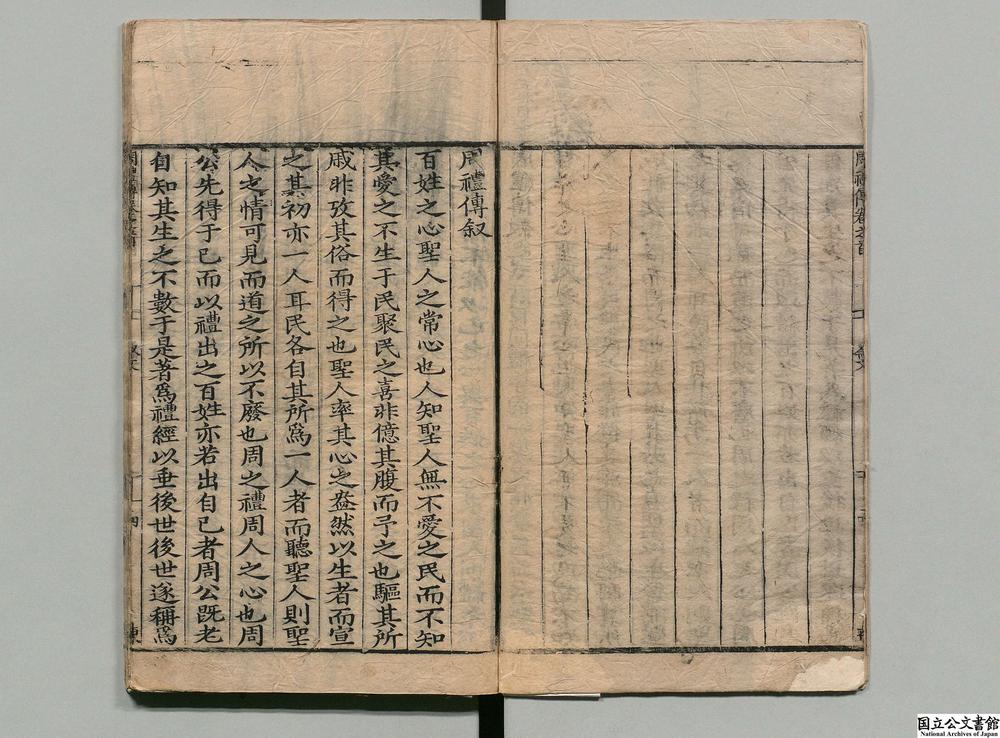 周禮傳叙
百姓之心聖人之常心也人知聖人無不愛之民而不知
其愛之不生于民聚民之喜非億其腹而予之也驅其所
戚非攷其俗而得之也聖人率其心之盎然以生者而宣
之其初亦一人耳民各自其所爲一人者而聽聖人則聖
人之情可見而道之所以不廢也周之禮周人之心也周
公先得于已而以禮出之百姓亦若出自已者周公既老
自知其生之不數于是著爲禮經以垂後世後世遂稱爲
国立公文書館
National Archives of Japan